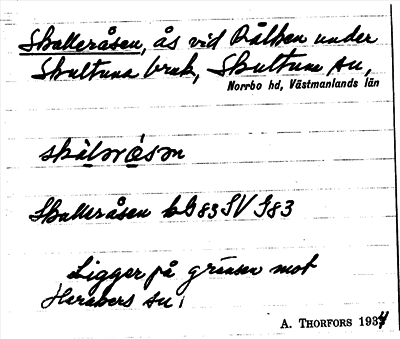 Skalleråsen, ås vid Bälken under
Skultuna bruk, Skultuna sn,
Norrbo hd, Västmanlands län
Skalleråsen bl 83 SV J83
Ligger på gränsen mot
Harakers sn.
A. THORFORS 1934